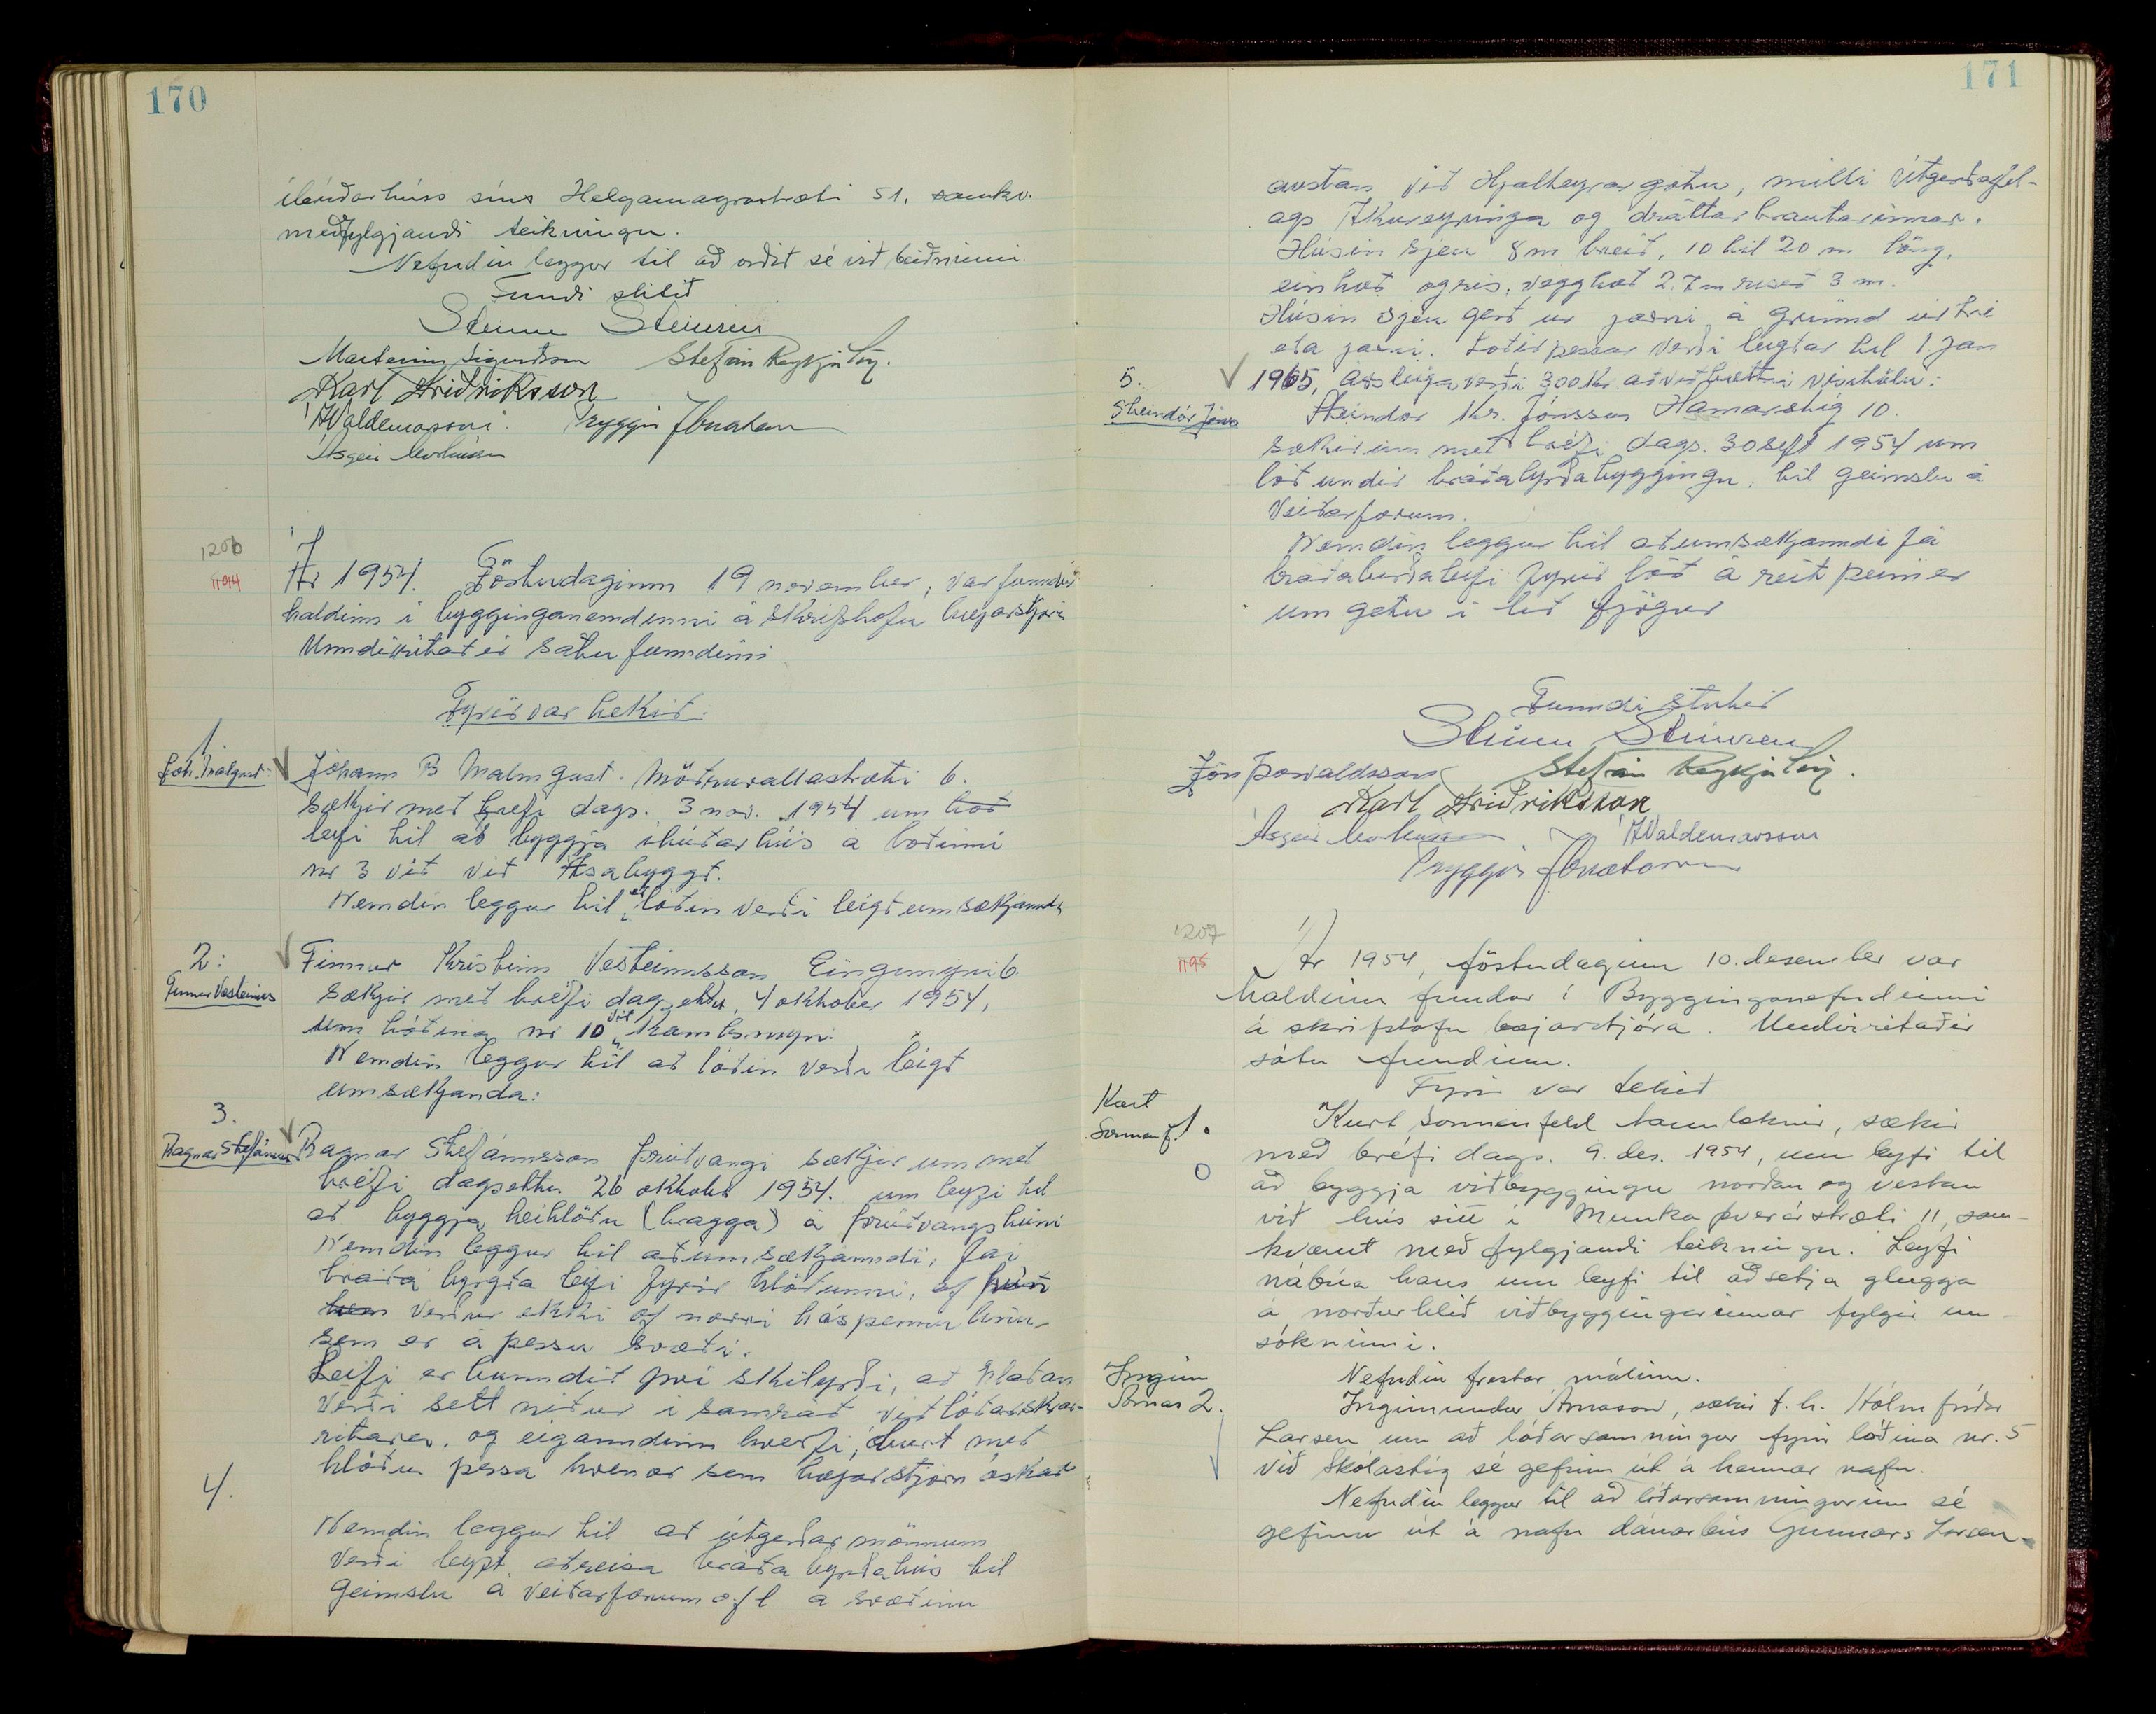 170
íbúðarhúss síns Helgamagrastræti 51, samkv.
meðfylgjandi teikningu.
Nefndin leggur til að orðið sé við beiðninni.
Fundi slitið
Steinn Steinsen
Marteinn Sigurðsson Stefán Reykjalín.
Karl Friðriksson
Tryggvi Jónatansson
Ásgeir Markússon
1206
1194
Ár 1954. Föstudaginn 19 november, var funndur
haldinn i bygginganemdinni á skrifstofu bæjarstjóra
Unndirritaðir sátu funndinn
Fyrir var tekið:
1.
Jóh. Malmqust:
Jóhann B Malmqust. Möðruvallastræti 6.
sækjir með brefi dags. 3 nov. 1954 um loð
leyfi til að byggja íbúðarhús á loðinni
nr 3 við við Ásabyggð.
Nemdin leggur til að lóðin verði leigð umsækjannda
2:
Finnur Vesteinss
Finnur Kristinn Vesteinsson Eingimýri 6
sækjir með bréfi dagsettu, 4 oktober 1954,
um lóðina nr 10 við Kambsmýri.
Nemdin leggur til að lóðin verði leigð
umsækjanda:
3.
Ragnar Stefánsson
Ragnar Stefánnsson Þrúðvangi sækjir um með
bréfi dagsettu 26 oktober 1954. um leyfi til
að byggja heihlöðu (bragga) á Þrúðvangstúni
Nemdin leggur til að umsækjanndi, fái
bráðabyrgða leyfi fyrir hlöðunni, ef hún
verður ekki of nærri háspennu línu,
sem er á þessu svæði.
Leifi er bunndið því skilyrði, að hlaðan
verði sett niður i samráð við lóðarskrá-
ritara, og eiganndinn hverfi, burt með
hlöðu þessa hvenær sem bæjarstjórn óskar
4.
Nemdin leggur til að útgerðarmönnum
verði leyft að reisa bráðabyrðahús til
geimslu á veiðarfærum o.f l á svæðinu
171
austan við Hjalteyrargötu, milli Útgerðafjel-
ags Akureyringa og dráttarbrautarinnar.
Húsin sjeu 8m breið, 10 til 20 m löng,
einhæð og ris, vegghæð 2.7m risið 3 m.
Húsin sjeu gerð úr járni á grinnd úr tré
eða járni. Loðir þessar verði leigðar til 1 jan
1965, ársleiga verði 300 kr að viðbættri vísitölu:
5.
Steindór Jónss
Steindór Kr. Jónsson Hamarstig 10.
sækir um með bréfi dags. 30 sept 1954 um
lóð undir bráðabyrðabyggingu, til geimslu á
Veiðarfærum.
Nemdin leggur til að umsækjanndi fá
bráðaburðaleyfi fyrir lóð á reit þeim er
um getur i lið fjögur
Funndi slitið
Steinn Steinsen
Jón Þorvaldsson Stefán Reykjalín.
Karl Friðriksson
Ásgeir Markússon
Tryggvi Jónatansson
1207
1195
Ár 1954, föstudaginn 10. desember var
haldinn fundur í Bygginganefndinni
á skrifstofu bæjarstjóra. Undirritaðir
sátu fundinn.
Fyrir var tekið
Kurt
Sonnenf. 1.
Kurt Sonnenfeld tannlæknir, sækir
með bréfi dags. 9. des. 1954, um leyfi til
að byggja viðbyggingu norðan og vestan
við hús sitt í Munkaþverárstræti 11, sam-
kvæmt meðfylgjandi teikningu. Leyfi
nábúa hans um leyfi til að setja glugga
á norðurhlið viðbyggingarinnar fylgir um-
sókninni.
Nefndin frestar málinu.
Ingim
Árnas 2.
Ingimundur Árnason, sækir f. h. Hólmfríðar
Larsen um að lóðarsamningur fyrir lóðina nr. 5
við Skólastíg sé gefinn út á hennar nafn.
Nefndin leggur til að lóðarsamningurinn sé
gefinn út á nafn dánarbús Gunnars Larsen.